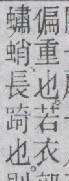 偏重也。若衣
蟰蛸長踦也。